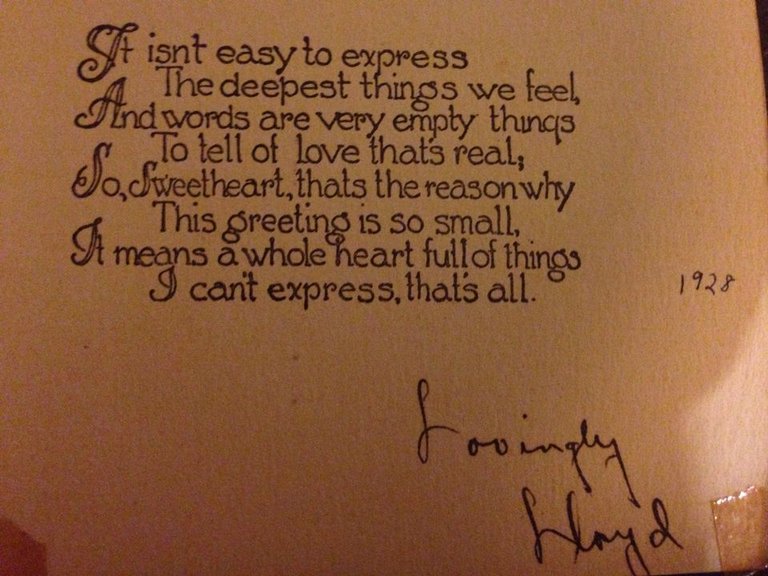 It isn't easy to express
The deepest things we feel,
And words are very empty things
To tell of love that's real;
So, Sweetheart, thats the reason why
This greeting is so small,
It means a whole heart full of things
I can't express, that's all.
1928
Lovingly
Lloyd